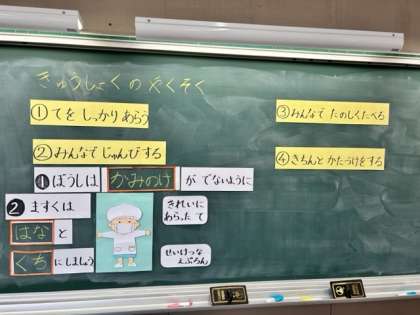 きゅうしょくのやくそく
①てをしっかりあらう
②みんなでじゅんびする
❶ぼうしは かみのけ がでないように
❷ますくは
はな と
くち にしましょう
きれいに
あらった て
せいけつな
えぷろん
③みんなでたのしくたべる
④きちんとかたづけをする